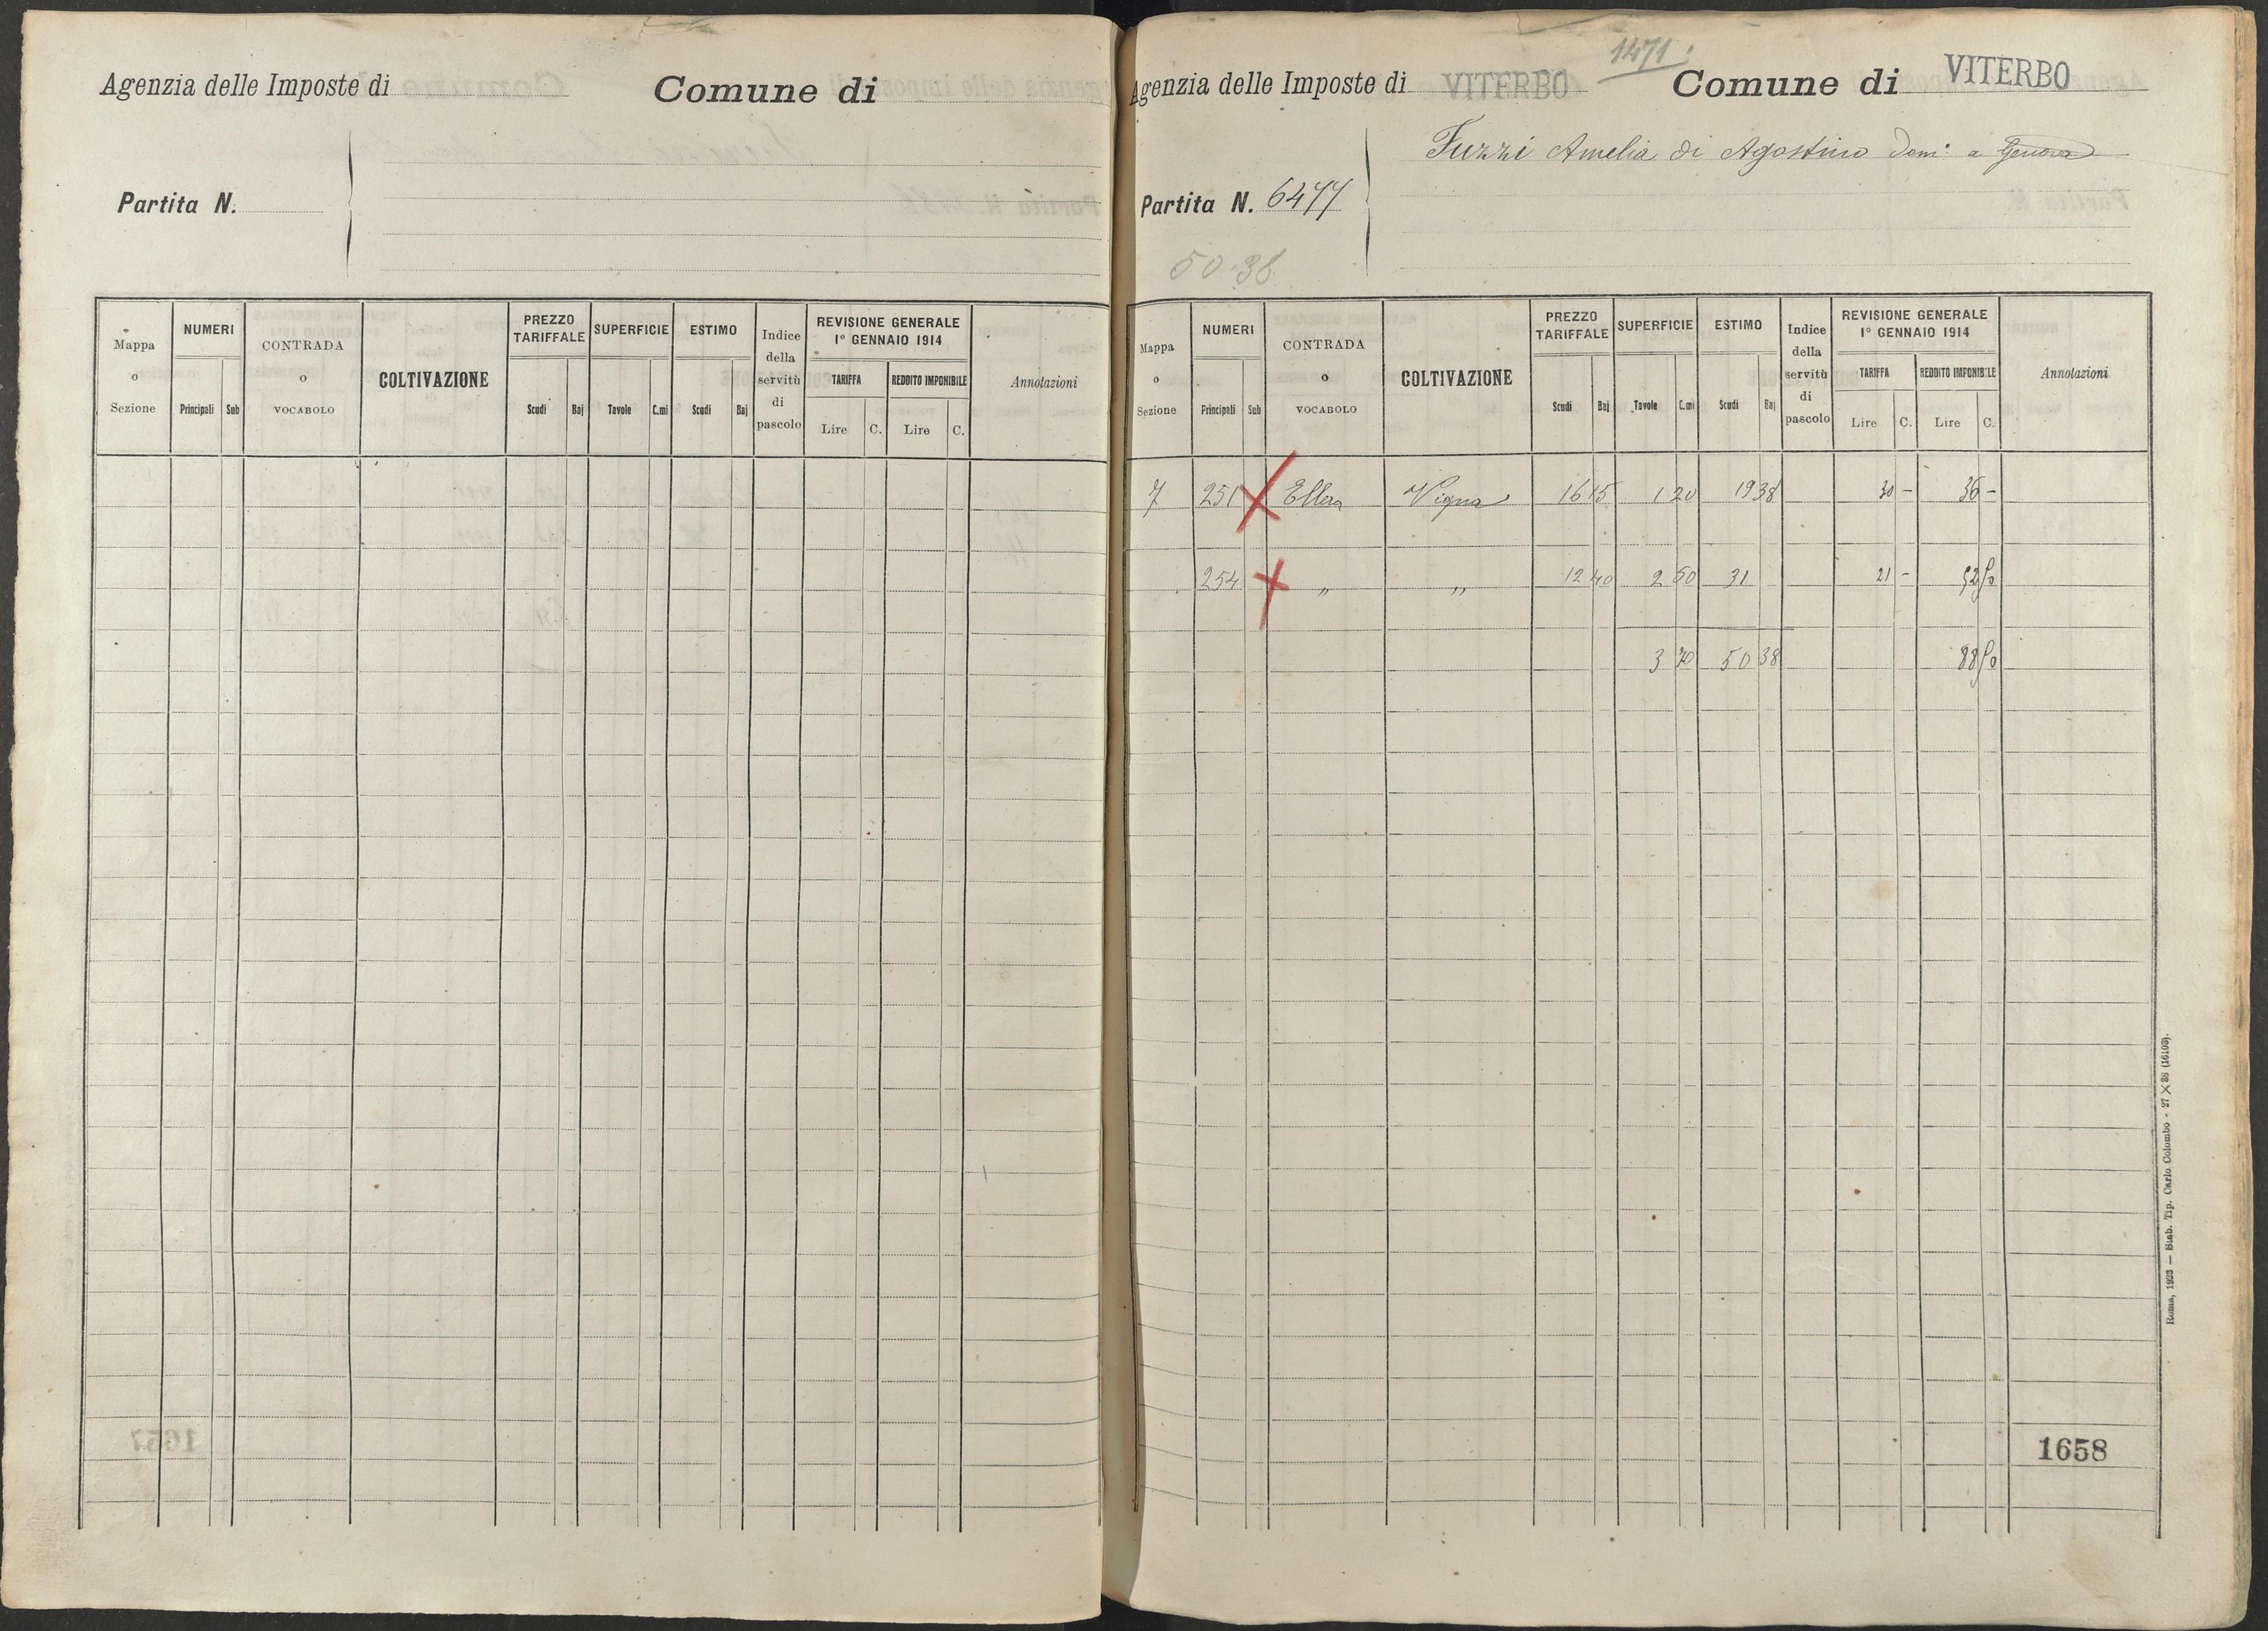 Agenzia delle Imposte di Comune di
Partita N.
Mappa o Sezione NUMERI Principali Sub CONTRADA o VOCABOLO COLTIVAZIONE PREZZO TARIFFALE Scudi Baj SUPERFICIE Tavole C.mi ESTIMO Scudi Baj Indice della servitù di pascolo REVISIONE GENERALE 1° GENNAIO 1914 TARIFFA Lire C. REDDITO IMPONIBILE Lire C. Annotazioni
1657
1471
Agenzia delle Imposte di VITERBO Comune di VITERBO
Fuzzi Amelia di Agostino Dom. a Genova
Partita N. 6477
50.38
Mappa o Sezione NUMERI Principali Sub CONTRADA o VOCABOLO COLTIVAZIONE PREZZO TARIFFALE Scudi Baj SUPERFICIE Tavole C.mi ESTIMO Scudi Baj Indice della servitù di pascolo REVISIONE GENERALE 1° GENNAIO 1914 TARIFFA Lire C. REDDITO IMPONIBILE Lire C. Annotazioni
7 251 Ellera Vigna 16 15 1 20 19 38 30 - 36 -
254 " " 12 40 2 50 31 21 - 52 50
3 70 50 38 88 50
1658
Roma, 1923 — Stab. Tip. Carlo Colombo - 27 X 38 (16103).